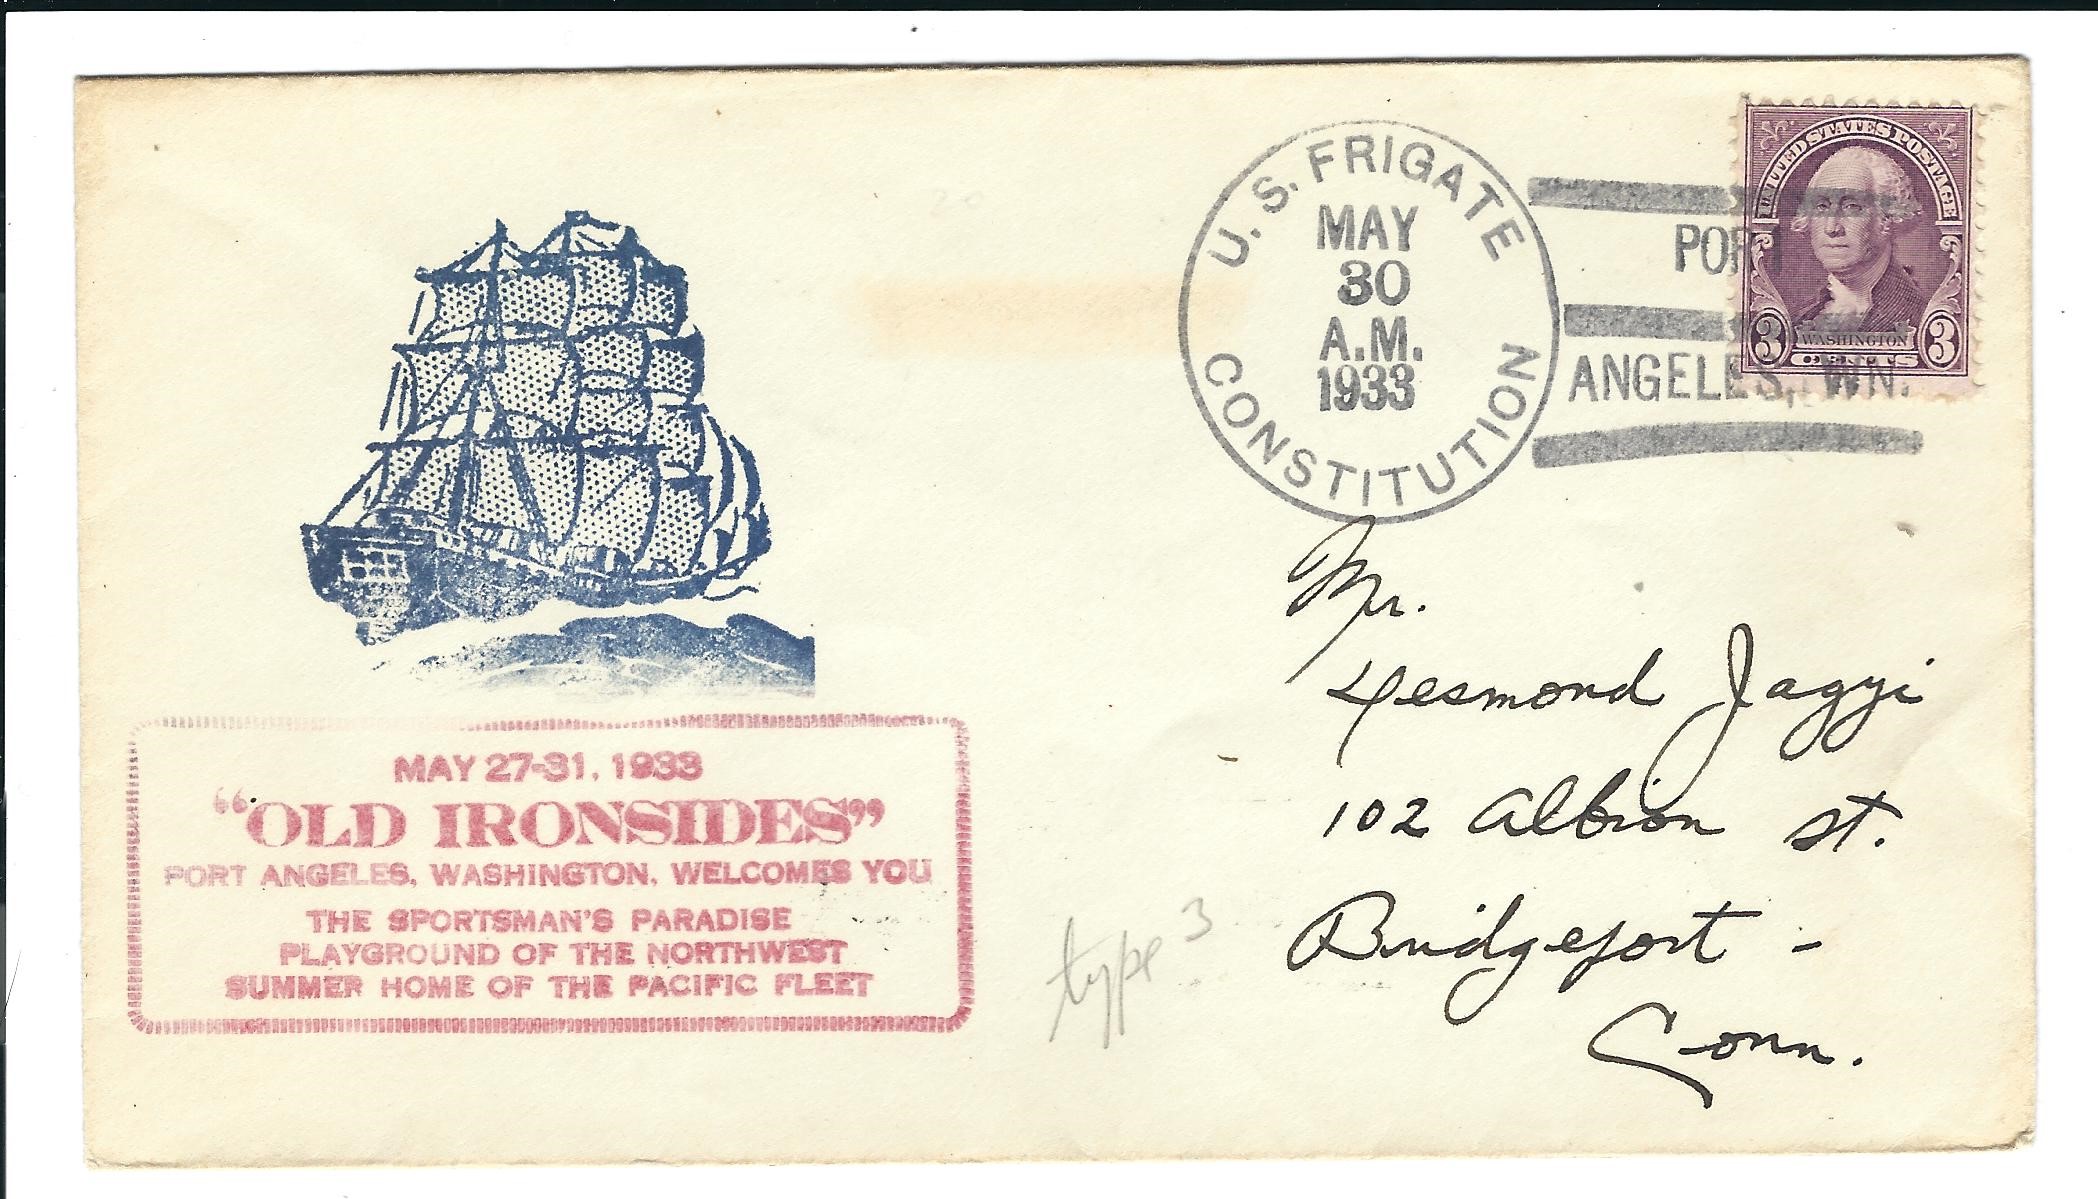 U. S. FRIGATE
CONSTITUTION
MAY
30
A.M.
1933
PORT
ANGELES, WN.
UNITED STATES POSTAGE
3 WASHINGTON 3
CENTS
Mr.
Desmond Jagyi
102 Albion St.
Bridgeport -
Conn.
type 3
MAY 27-31, 1933
“OLD IRONSIDES”
PORT ANGELES, WASHINGTON, WELCOMES YOU
THE SPORTSMAN'S PARADISE
PLAYGROUND OF THE NORTHWEST
SUMMER HOME OF THE PACIFIC FLEET